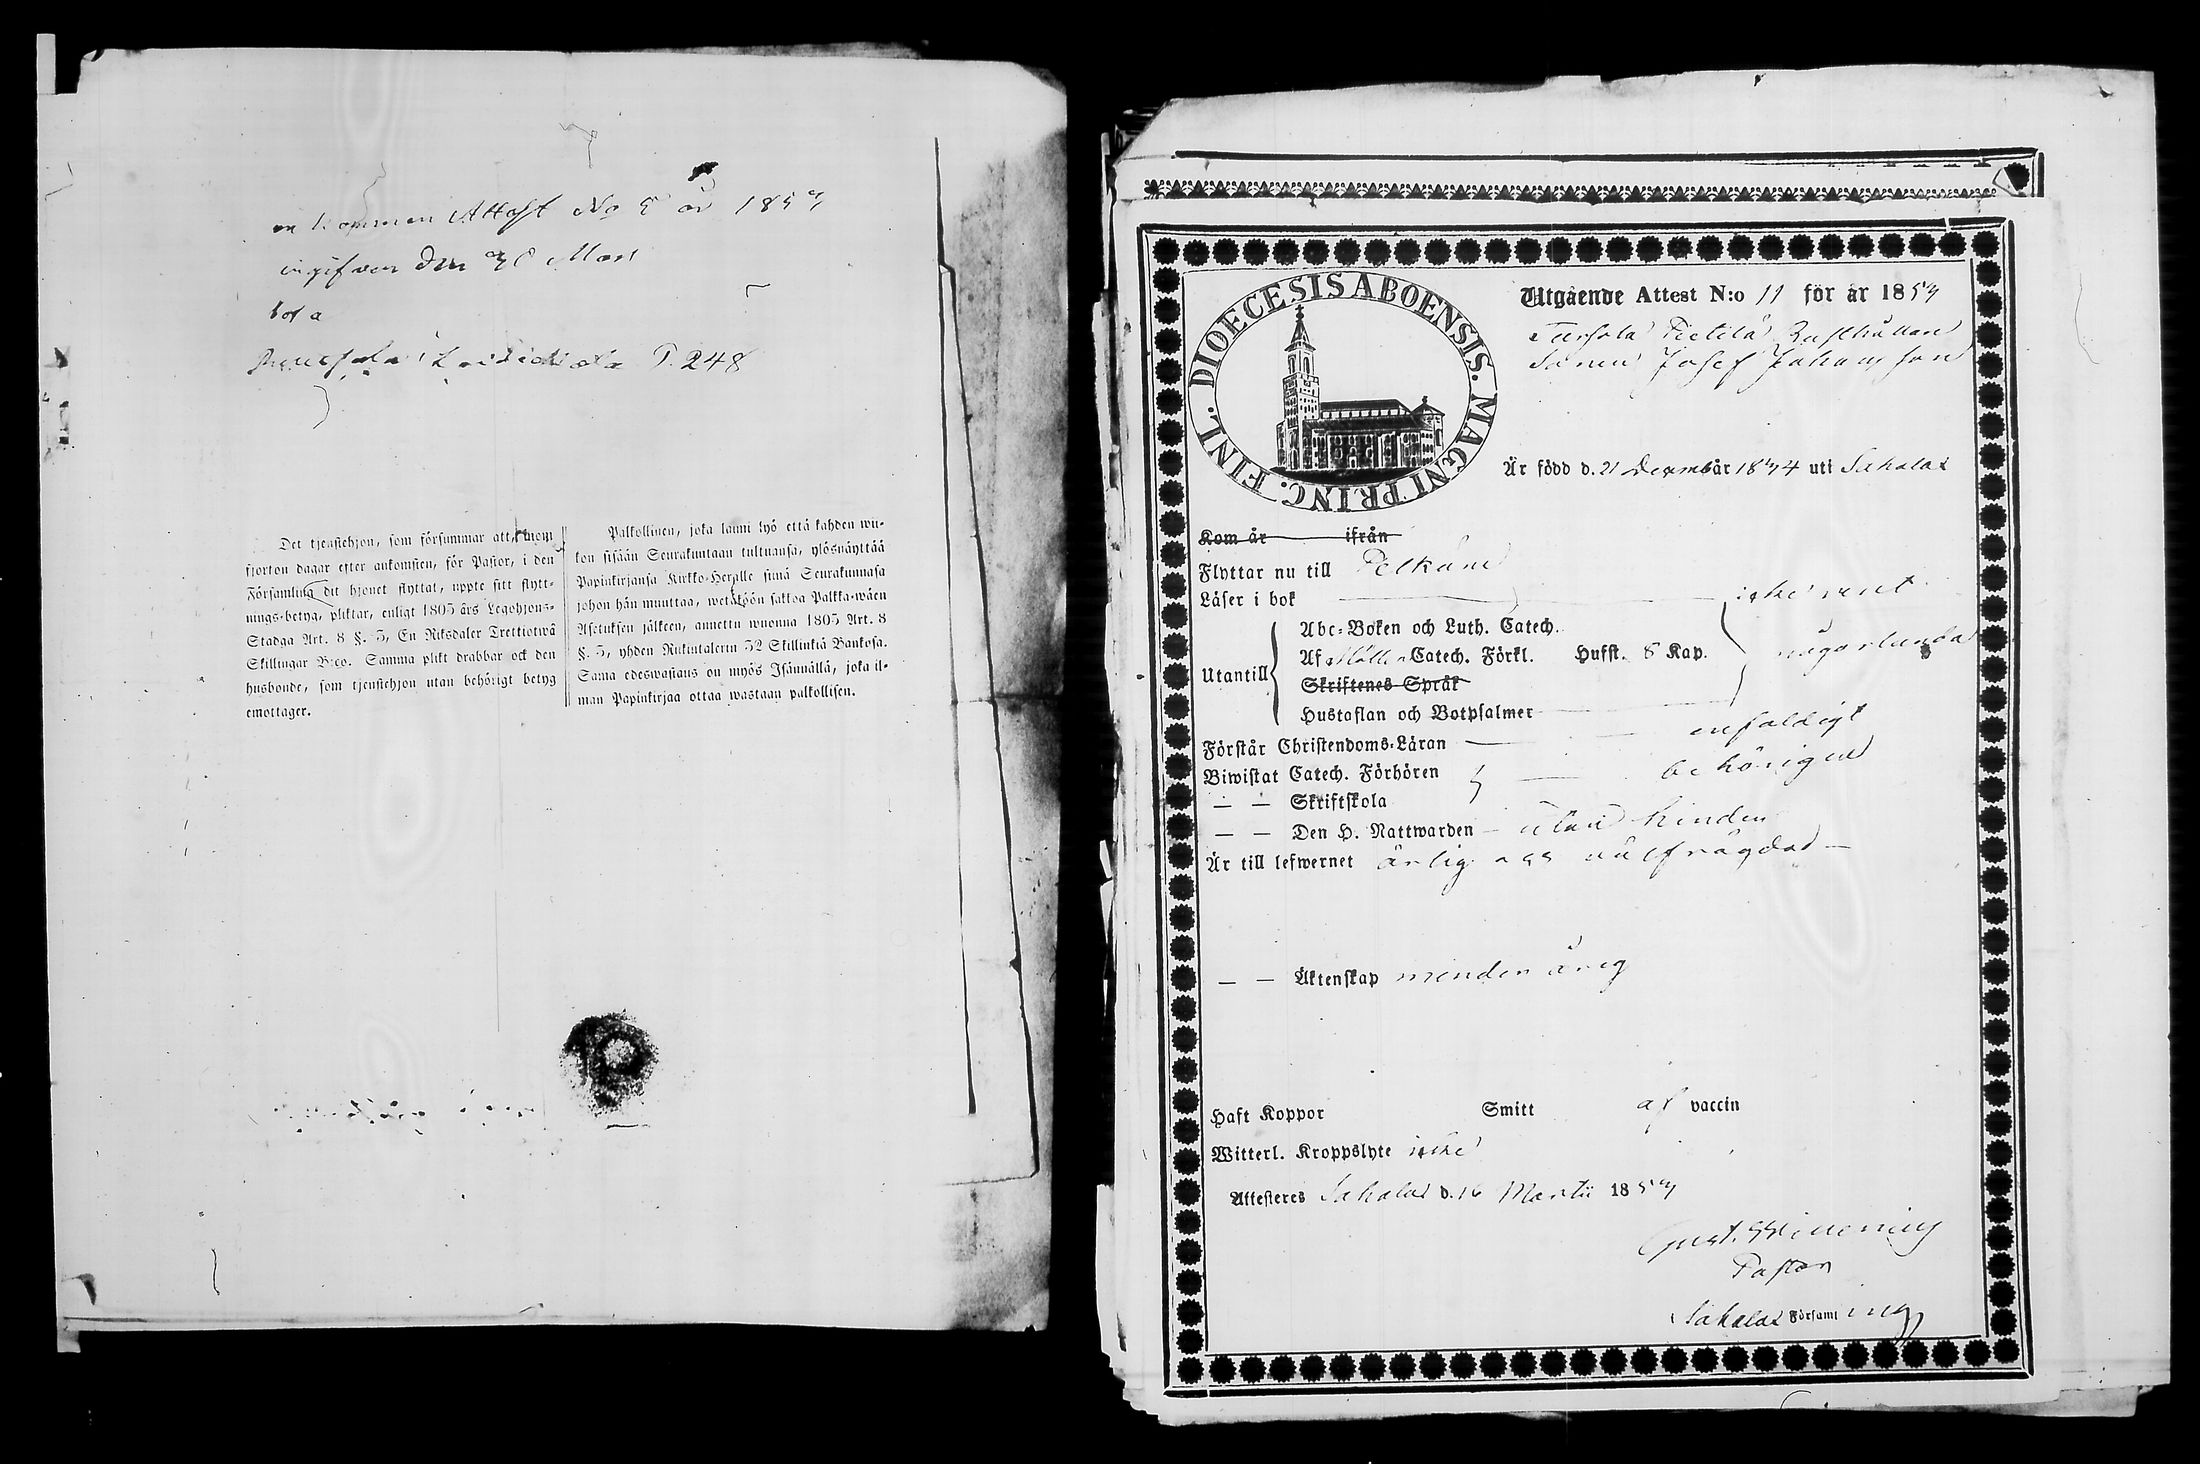 inkommen Attest No 5 år 1859
ingifven den 30 Mars
P. 248
Det tjenstehjon, som försummar att, inom
fjorton dagar efter ankomsten, för Pastor, i den
Församling dit hjonet flyttat, uppte sitt flytt-
nings-betyg, pliktar, enligt 1805 års Legohjons-
Stadga Art. 8 §. 5, En Riksdaler Trettiotwå
Skillingar B:co. Samma plikt drabbar ock den
husbonde, som tjenstehjon utan behörigt betyg
emottager.
Palkollinen, joka laimi lyö että kahden wii-
kon sisään Seurakuntaan tultuansa, ylösnäyttää
Papinkirjansa Kirkko-Herralle siinä Seurakunnasa
johon hän muuttaa, wetäköön sakkoa Palkka-wäen
Asetuksen jälkeen, annettu wuonna 1805 Art. 8
§. 5, yhden Riikintalerin 32 Skillinkiä Bankosa.
Sama edeswastaus on myös Isännällä, joka il-
man Papinkirjaa ottaa wastaan palkollisen.
DIOECESIS ABOENSIS. MAGNI PRINC. FINL.
Utgående Attest N:o 11 för år 1859
Pietilä Rusthållare
Sonen Josef Johansson
Är född d. 21 December år 1844 uti Sahalax
Kom år ifrån
Flyttar nu till Pelkäne
Läser i bok
icke rent
Utantill
Abc-Boken och Luth. Catech.
Af Möllers Catech. Förkl. Hufst. 8 Kap.
någorlunda
Skriftenes Språk
Hustaflan och Botpsalmer
Förstår Christendoms-Läran enfaldigt
Biwistat Catech. Förhören behörigen
— — Skriftskola
— — Den H. Nattwarden utan hinder
Är till lefwernet ärlig och välfrägdad
— — Äktenskap minderårig
Haft Koppor Smitt af vaccin
Witterl. Kroppslyte icke
Attesteres Sahalax d. 16 Martii 1859
Gust.
Pastor
Sahalax Församling